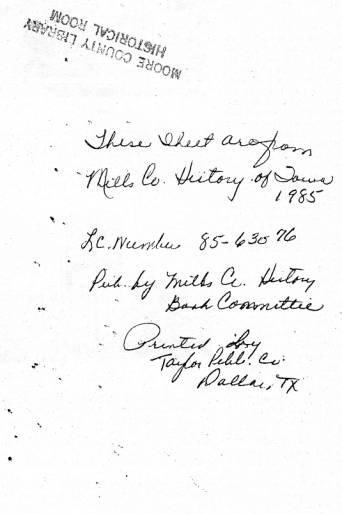 MOORE COUNTY LIBRARY
HISTORICAL ROOM
These Sheet are from
Mills Co. History of Iowa
1985
LC. Number 85-63076
Pub. by Mills Co. History
Book Committie
Printed by
Taylor Publ. Co.
Dallas, TX